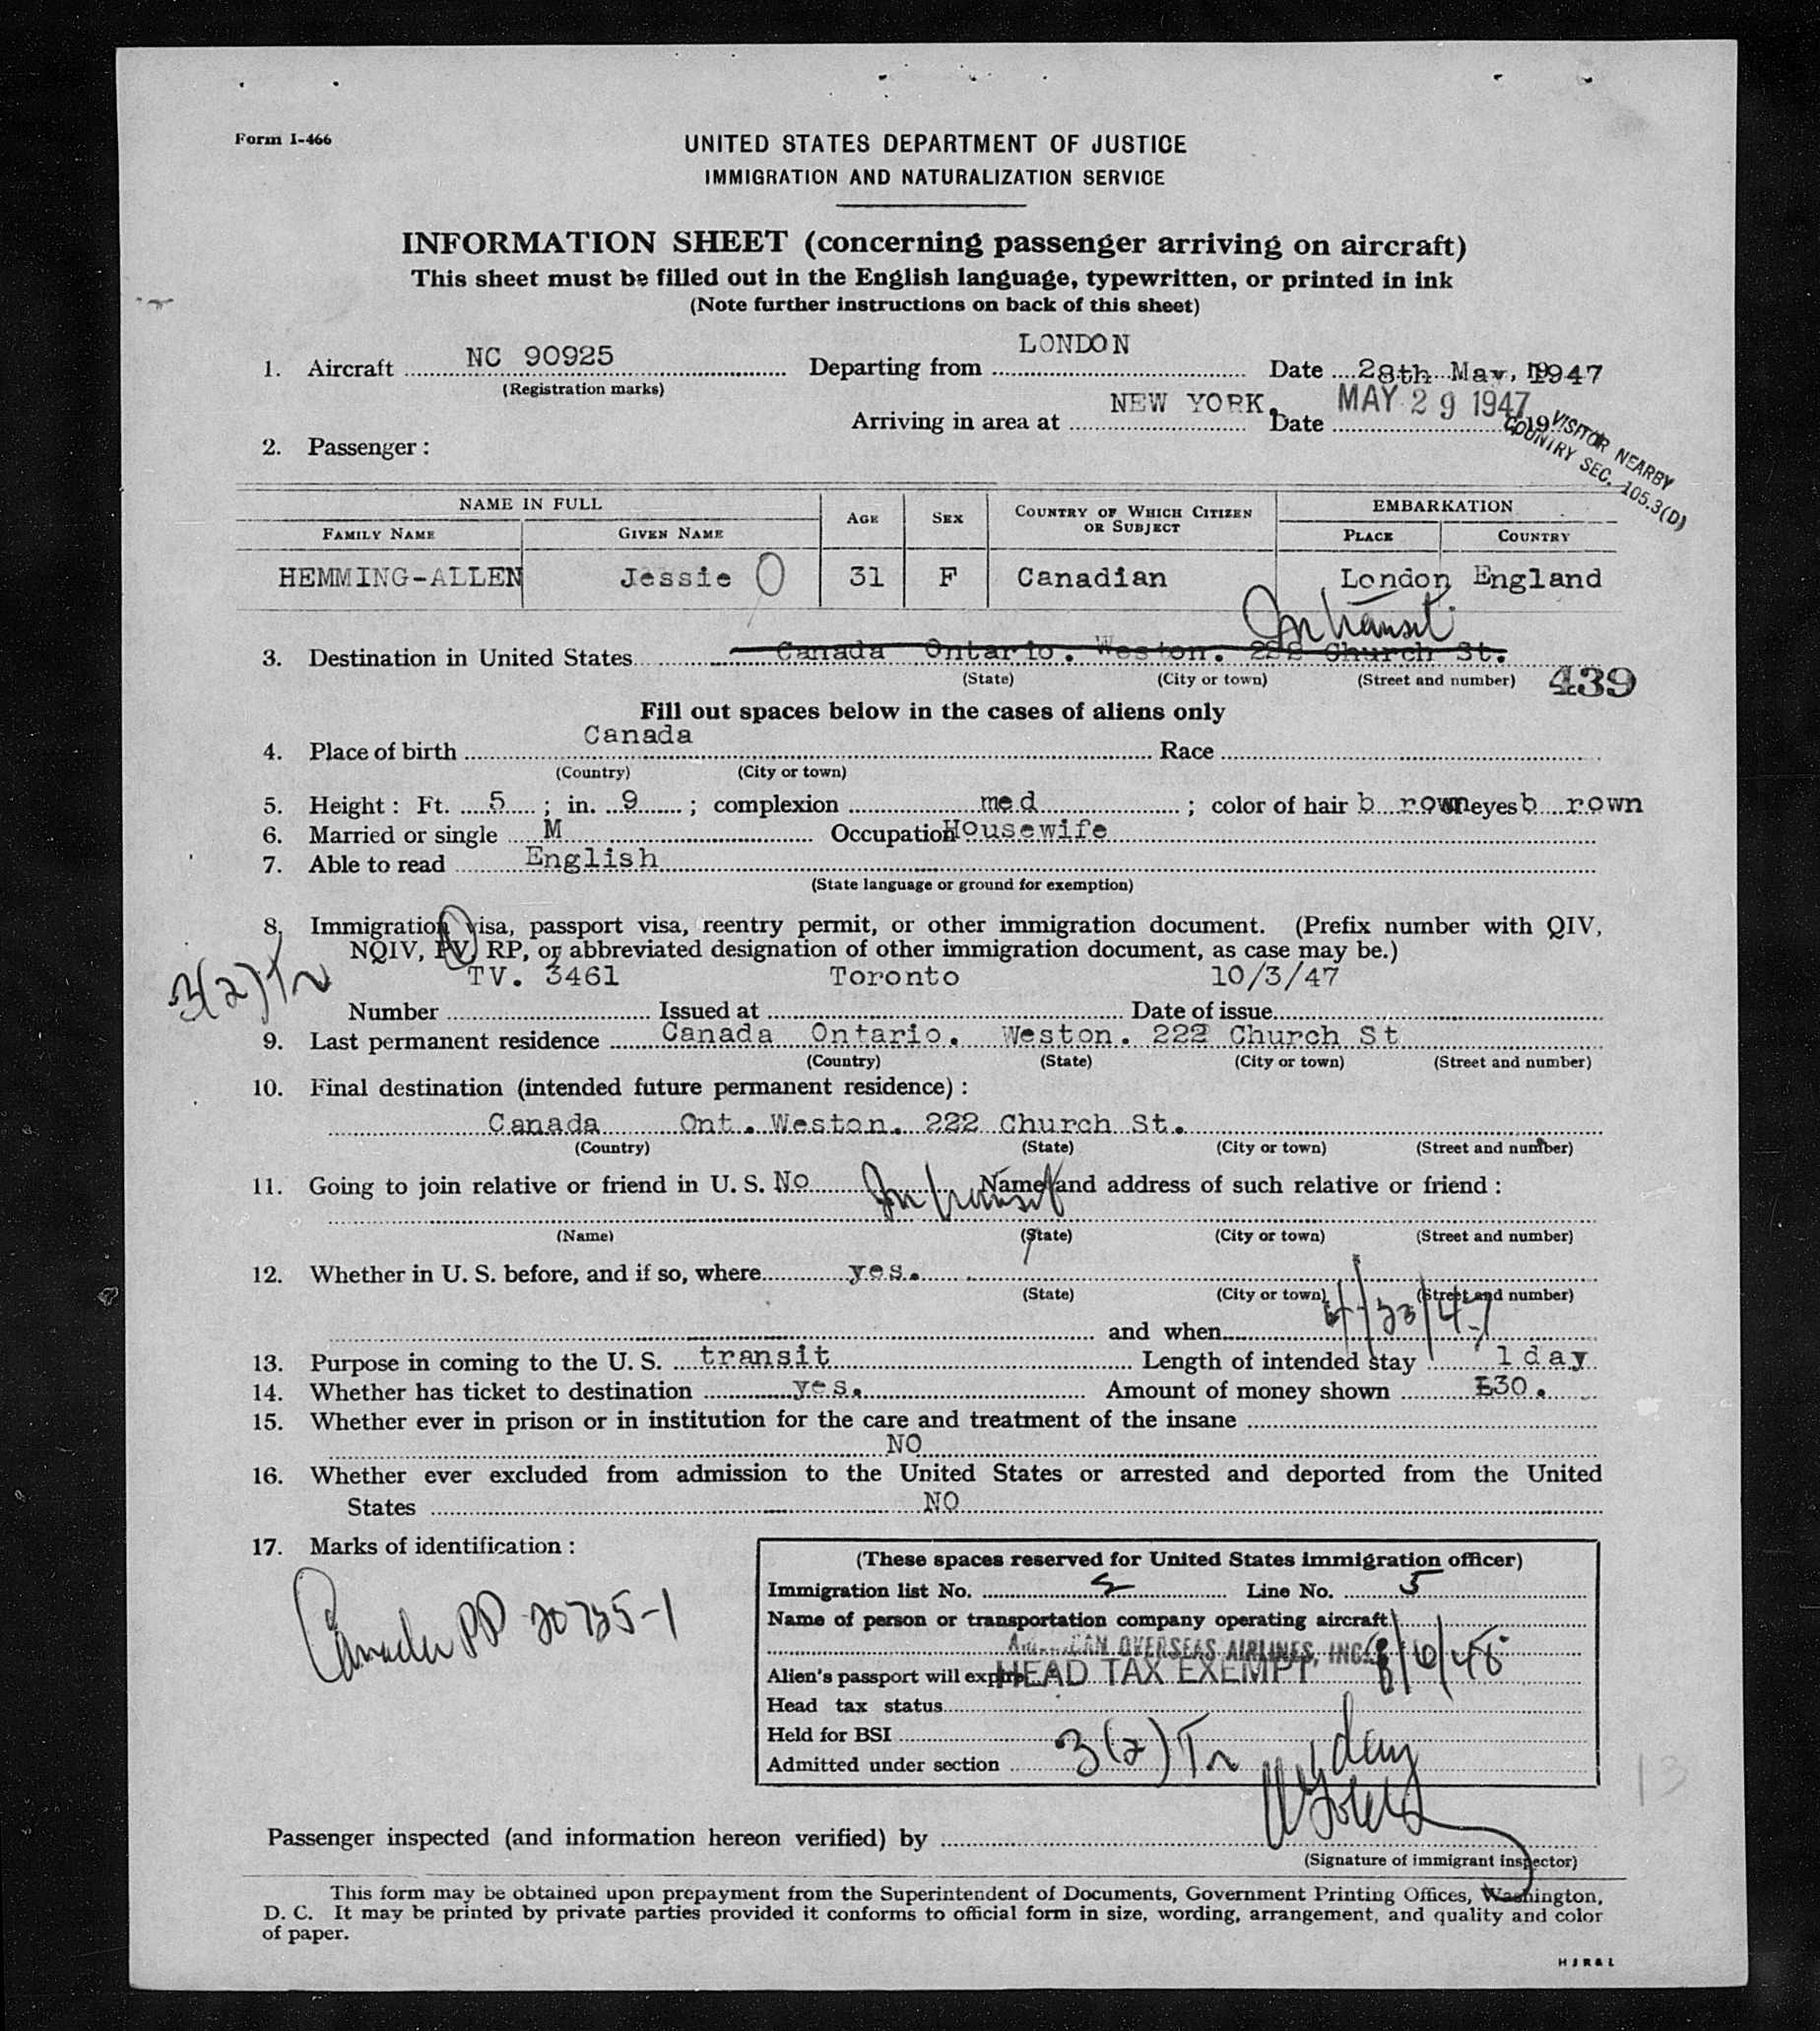 Form I-466
UNITED STATES DEPARTMENT OF JUSTICE
IMMIGRATION AND NATURALIZATION SERVICE
INFORMATION SHEET (concerning passenger arriving on aircraft)
This sheet must be filled out in the English language, typewritten, or printed in ink
(Note further instructions on back of this sheet)
1. Aircraft NC 90925 Departing from LONDON Date 28th May, 1947
(Registration marks)
Arriving in area at NEW YORK. Date MAY 29 1947 19
VISITOR NEARBY
COUNTRY SEC. 105.3(D)
2. Passenger:
NAME IN FULL AGE SEX COUNTRY OF WHICH CITIZEN OR SUBJECT EMBARKATION
FAMILY NAME GIVEN NAME PLACE COUNTRY
HEMMING-ALLEN Jessie 31 F Canadian London England
In transit
3. Destination in United States Canada Ontario. Weston. 222 Church St.
(State) (City or town) (Street and number) 439
Fill out spaces below in the cases of aliens only
4. Place of birth Canada Race
(Country) (City or town)
5. Height: Ft. 5; in. 9; complexion med; color of hair b rown eyes b rown
6. Married or single M Occupation Housewife
7. Able to read English
(State language or ground for exemption)
8. Immigration visa, passport visa, reentry permit, or other immigration document. (Prefix number with QIV,
NQIV, PV, RP, or abbreviated designation of other immigration document, as case may be.)
3(2) Tr
TV. 3461 Toronto 10/3/47
Number Issued at Date of issue
9. Last permanent residence Canada Ontario. Weston. 222 Church St
(Country) (State) (City or town) (Street and number)
10. Final destination (intended future permanent residence):
Canada Ont. Weston. 222 Church St.
(Country) (State) (City or town) (Street and number)
11. Going to join relative or friend in U. S. No In transit Name and address of such relative or friend:
(Name) (State) (City or town) (Street and number)
12. Whether in U. S. before, and if so, where yes.
(State) (City or town) (Street and number)
and when
13. Purpose in coming to the U. S. transit Length of intended stay 1 day
14. Whether has ticket to destination yes. Amount of money shown £30.
15. Whether ever in prison or in institution for the care and treatment of the insane
NO
16. Whether ever excluded from admission to the United States or arrested and deported from the United
States NO
17. Marks of identification:
Canada PP 20735-1
(These spaces reserved for United States immigration officer)
Immigration list No. 2 Line No. 5
Name of person or transportation company operating aircraft
AMERICAN OVERSEAS AIRLINES, INC.
Alien's passport will expire HEAD TAX EXEMPT
Head tax status
Held for BSI
Admitted under section 3(2) Tr 1 day
Passenger inspected (and information hereon verified) by
(Signature of immigrant inspector)
This form may be obtained upon prepayment from the Superintendent of Documents, Government Printing Offices, Washington,
D. C. It may be printed by private parties provided it conforms to official form in size, wording, arrangement, and quality and color
of paper.
H J R & L
13